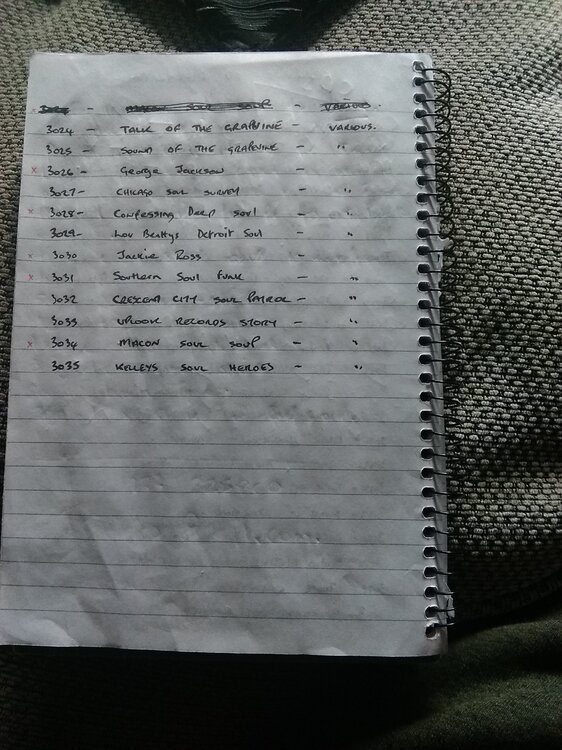 - SOUL SOUP - VARIOUS.
3024 - TALK OF THE GRAPEVINE - VARIOUS.
3025 - SOUND OF THE GRAPEVINE - "
x 3026 - George Jackson -
3027 - CHICAGO SOUL SURVEY - "
x 3028 - Confessing Deep Soul - "
3029 - Lou Beattys Detroit Soul - "
x 3030 Jackie Ross -
x 3031 Southern Soul Funk - "
3032 CRESCENT CITY SOUL PATROL - "
3033 RECORDS STORY - "
x 3034 MACON SOUL SOUP - "
3035 KELLEYS SOUL HEROES - "